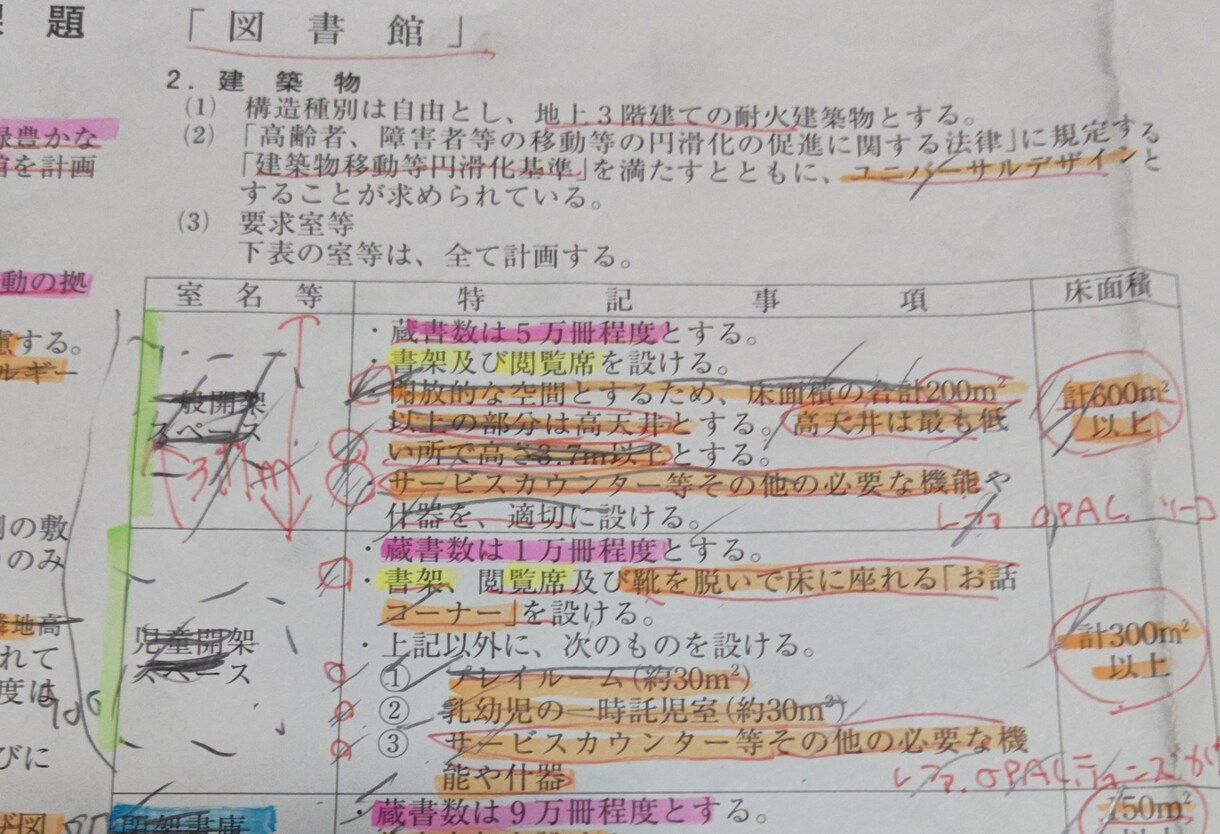 題 「図書館」
2．建築物
(1) 構造種別は自由とし、地上３階建ての耐火建築物とする。
(2) 「高齢者、障害者等の移動等の円滑化の促進に関する法律」に規定する
「建築物移動等円滑化基準」を満たすとともに、ユニバーサルデザインと
することが求められている。
(3) 要求室等
下表の室等は、全て計画する。
室名等 特記事項 床面積
一般開架
スペース
・蔵書数は５万冊程度とする。
・書架及び閲覧席を設ける。
・開放的な空間とするため、床面積の合計200m²
以上の部分は高天井とする。高天井は最も低
い所で高さ3.7m以上とする。
・サービスカウンター等その他の必要な機能や
什器を、適切に設ける。
計600m²
以上
レファ OPAC
児童開架
スペース
・蔵書数は１万冊程度とする。
・書架、閲覧席及び靴を脱いで床に座れる「お話
コーナー」を設ける。
・上記以外に、次のものを設ける。
① プレイルーム(約30m²)
② 乳幼児の一時託児室(約30m²)
③ サービスカウンター等その他の必要な機
能や什器
計300m²
以上
レファ OPAC
閉架書庫
・蔵書数は９万冊程度とする。
150m²
緑豊かな
館を計画
動の拠
慮する。
ルギー
の敷
のみ
隣地高
れて
度は
びに